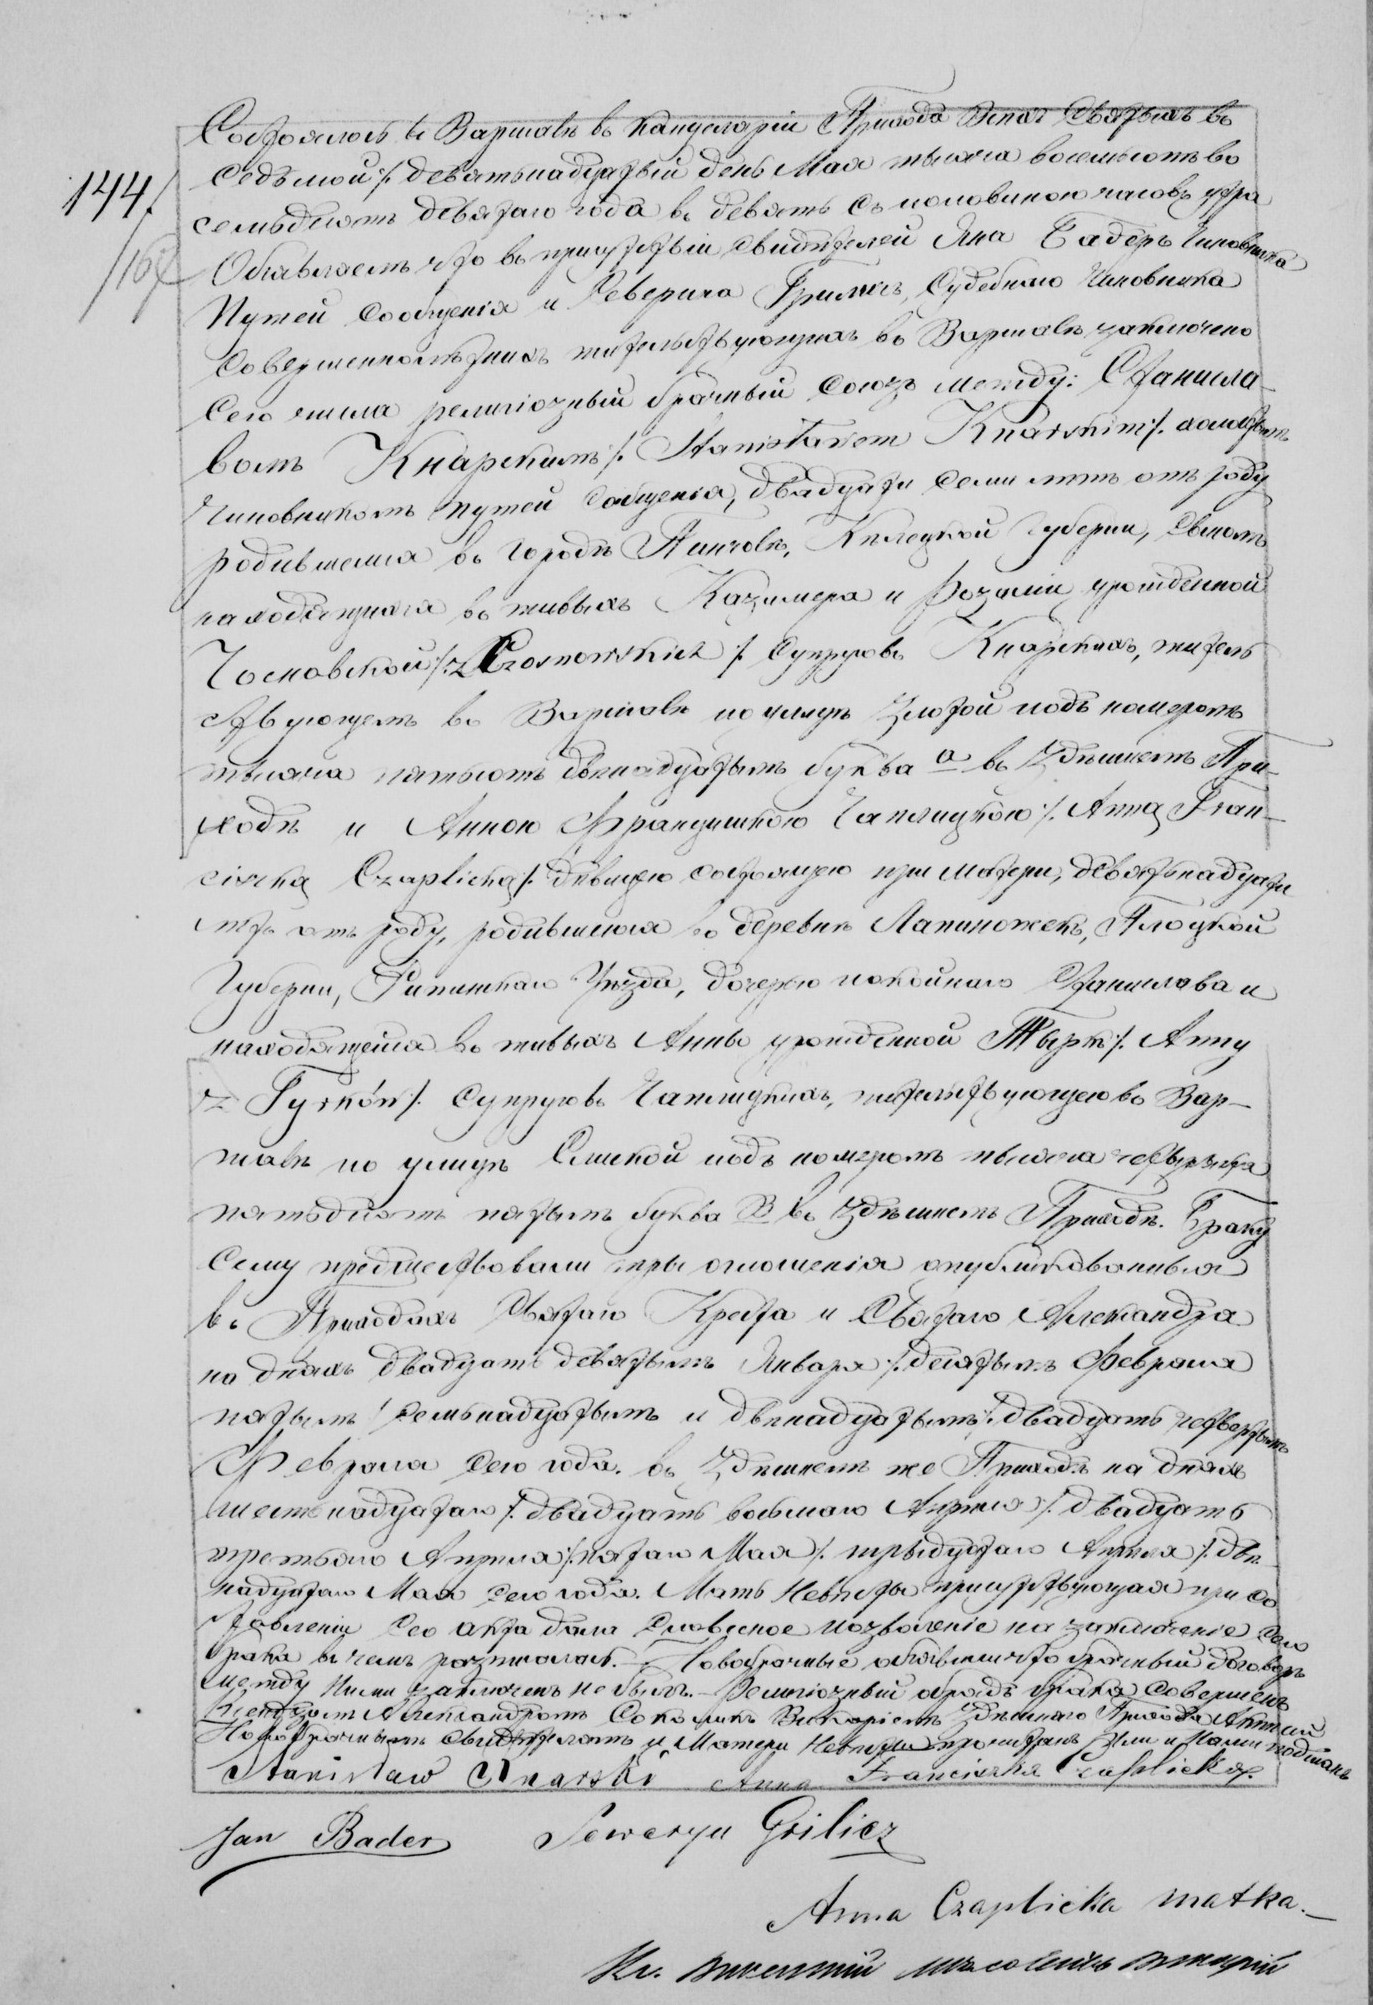 144.
167
Состоялось въ Варшавѣ въ Канцеляріи Прихода Всѣхъ Святыхъ въ
седьмой /:девятьнадцатый день Мая тысяча восемьсотъ во
семьдесятъ девятаго года въ девять съ половиною часовъ утра
Объявляемъ что въ присутствіи свидѣтелей Яна Бадеръ Чиновника
Путей Сообщенія и Северина Гриличъ, Судебнаго Чиновника
Совершеннолѣтнихъ жительствующихъ въ Варшавѣ заключено
сего числа религіозный брачный союзъ между: Станисла-
вомъ Кнарскимъ /: Stanisławem Knarskim /: холостымъ
Чиновникомъ путей Сообщенія, двадцати семи лѣтъ отъ роду
родившемся въ городѣ Пинчовѣ, Кѣлецкой Губерніи, сыномъ
находящихся въ живыхъ Казимера и Розаліи урожденной
Чосновской /: z Czosnowskich /: супруговъ Кнарскихъ, житель
ствующемъ въ Варшавѣ по улицѣ Злотой подъ номеромъ
тысяча пятьсотъ двѣнадцатымъ буква а въ Здѣшнемъ При-
ходѣ и Анною Францишкою Чаплицкою /: Anną Fran-
ciszką Czaplicką /: дѣвицею состоящею при матери, девятьнадцати
лѣтъ отъ роду, родившеюся въ деревнѣ Лапиножекъ, Плоцкой
Губерніи, Рипинскаго Уѣзда, дочерью покойнаго Станислава и
находящейся въ живыхъ Анны урожденной Тыркъ /: Anny
z Tyrków /: Супруговъ Чаплицкихъ, жительствующею въ Вар-
шавѣ по улицѣ Слиской подъ номеромъ тысяча четыреста
пятьдесятъ пятымъ буква В въ Здѣшнемъ Приходѣ. Браку
сему предшествовали три оглашенія опубликованныя
въ Приходахъ Святаго Креста и Святаго Александра
въ дняхъ двадцать девятымъ Января /: десятымъ Февраля
пятымъ / семьнадцатымъ и двѣнадцатымъ /: двадцать четвертымъ
Февраля сего года. въ Здѣшнемъ же Приходѣ въ дняхъ
шестнадцатаго /: двадцать восьмаго Апрѣля /: двадцать
третьяго Апрѣля /: пятаго Мая /: тридцатаго Апрѣля /: двѣ
надцатаго Мая сего года. Мать Невѣсты присутствующая при со
ставленіи сего акта дала словесное позволеніе на заключеніе сего
брака въ чемъ росписалась. – Новобрачные объявили что брачный договоръ
между ними заключенъ не былъ. – Религіозный обрядъ брака совершенъ
Ксендзомъ Александромъ Соколикъ Викаріемъ Здѣшняго Прихода. Актъ сей
Новобрачнымъ Свидѣтелямъ и Матери Невѣсты прочитанъ Ими и Нами подписанъ
Stanisław Knarski Anna Franciszka Czaplicka.
Jan Bader Seweryn Grilicz
Anna Czaplicka matka.
Кс. Викентій викарій